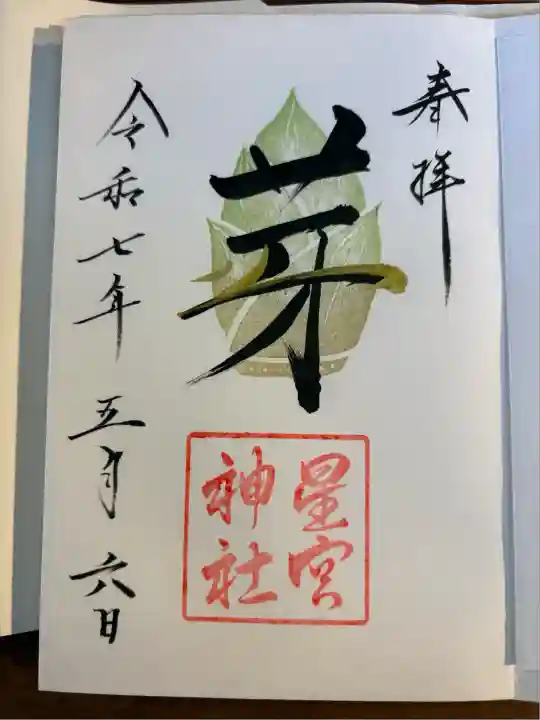 奉拝
芽
星宮
神社
令和七年 五月 六日